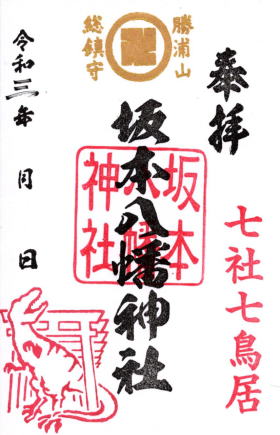 奉拝
七社七鳥居
勝浦山
総鎮守
坂本八幡神社
坂本
八幡
神社
令和三年 月 日